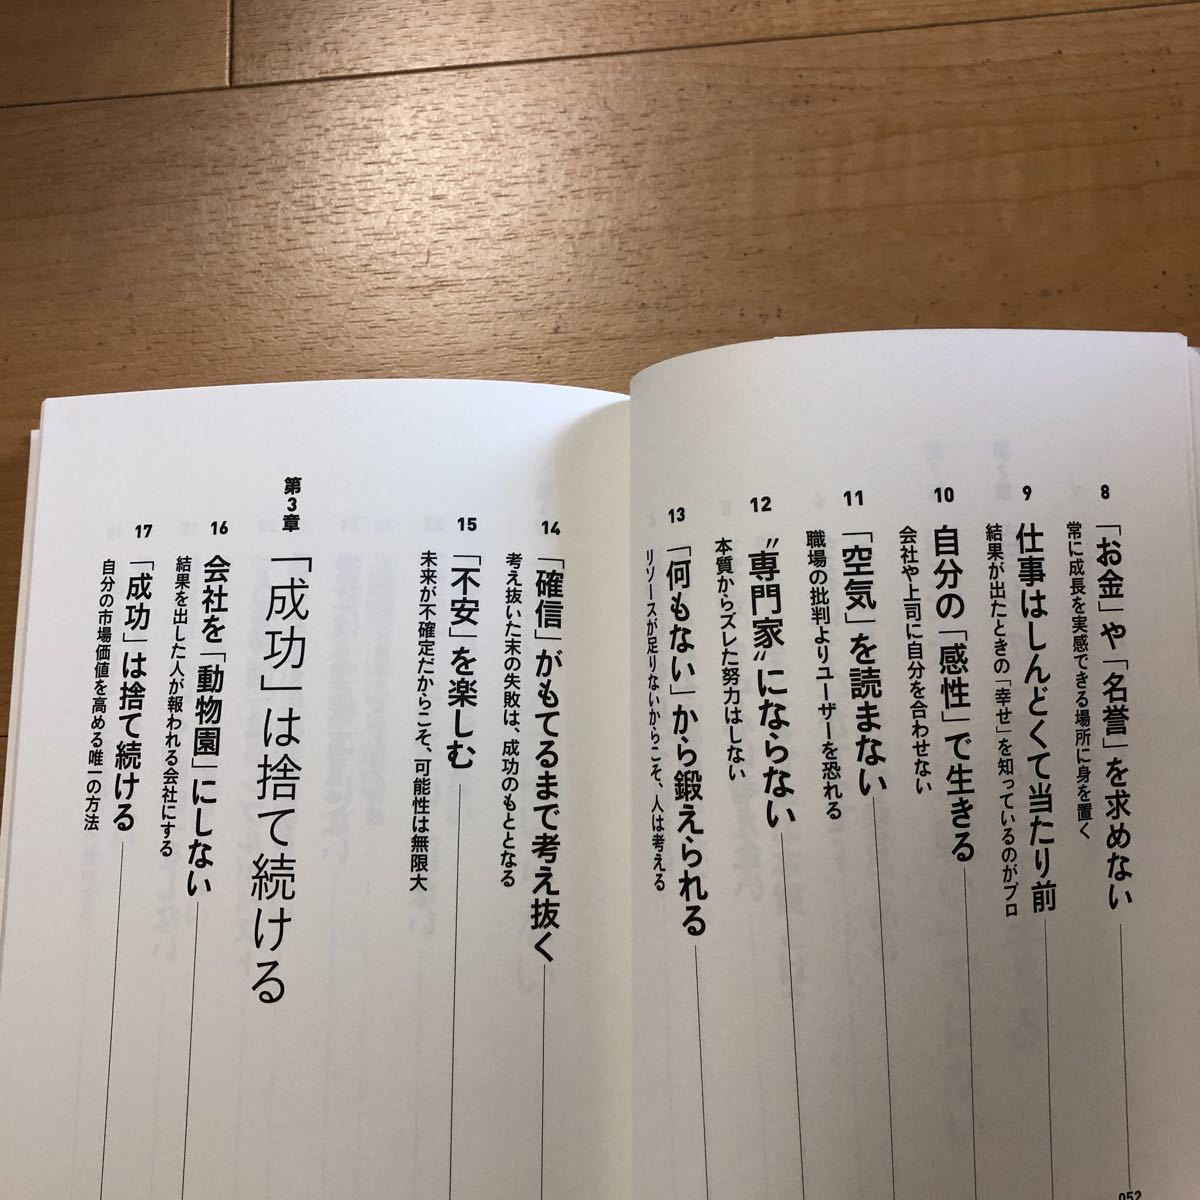 8
「お金」や「名誉」を求めない
常に成長を実感できる場所に身を置く
052
9
仕事はしんどくて当たり前
結果が出たときの「幸せ」を知っているのがプロ
10
自分の「感性」で生きる
会社や上司に自分を合わせない
11
「空気」を読まない
職場の批判よりユーザーを恐れる
12
“専門家”にならない
本質からズレた努力はしない
13
「何もない」から鍛えられる
リソースが足りないからこそ、人は考える
14
「確信」がもてるまで考え抜く
考え抜いた末の失敗は、成功のもととなる
15
「不安」を楽しむ
未来が不確定だからこそ、可能性は無限大
第3章
「成功」は捨て続ける
16
会社を「動物園」にしない
結果を出した人が報われる会社にする
17
「成功」は捨て続ける
自分の市場価値を高める唯一の方法